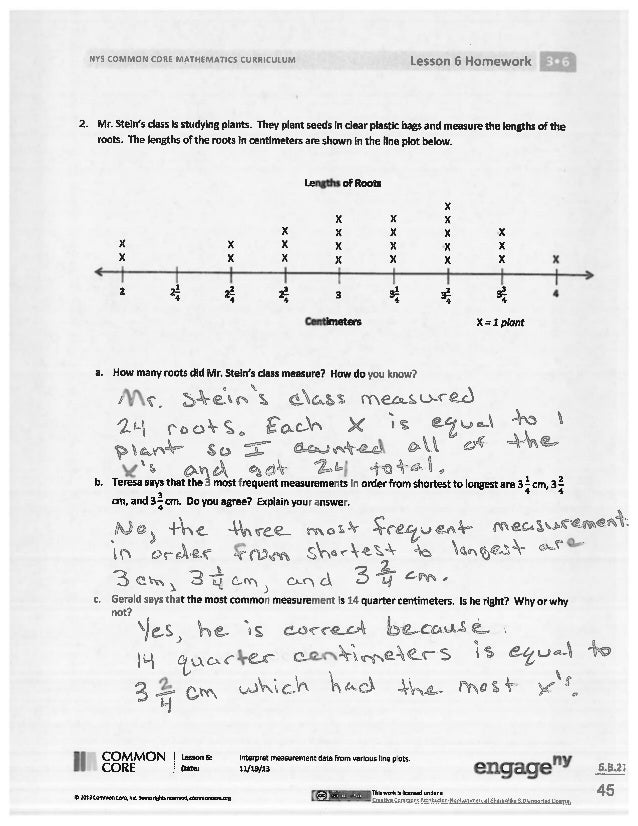 NYS COMMON CORE MATHEMATICS CURRICULUM Lesson 6 Homework 3•6
2. Mr. Stein's class is studying plants. They plant seeds in clear plastic bags and measure the lengths of the
roots. The lengths of the roots in centimeters are shown in the line plot below.
Lengths of Roots
X
X X X
X X X X X
X X X X X X X
X X X X X X X X
2 2 1/4 2 2/4 2 3/4 3 3 1/4 3 2/4 3 3/4 4
Centimeters X = 1 plant
a. How many roots did Mr. Stein's class measure? How do you know?
Mr. Stein's class measured
24 roots. Each X is equal to 1
plant so I counted all of the
X's and got 24 total.
b. Teresa says that the 3 most frequent measurements in order from shortest to longest are 3 1/4 cm, 3 2/4
cm, and 3 3/4 cm. Do you agree? Explain your answer.
No, the three most frequent measurements
in order from shortest to longest are
3 cm, 3 1/4 cm, and 3 2/4 cm.
c. Gerald says that the most common measurement is 14 quarter centimeters. Is he right? Why or why
not?
Yes, he is correct because
14 quarter centimeters is equal to
3 2/4 cm which had the most x's.
COMMON CORE Lesson 6: Interpret measurement data from various line plots.
Date: 11/19/13
engage ny
45
This work is licensed under a